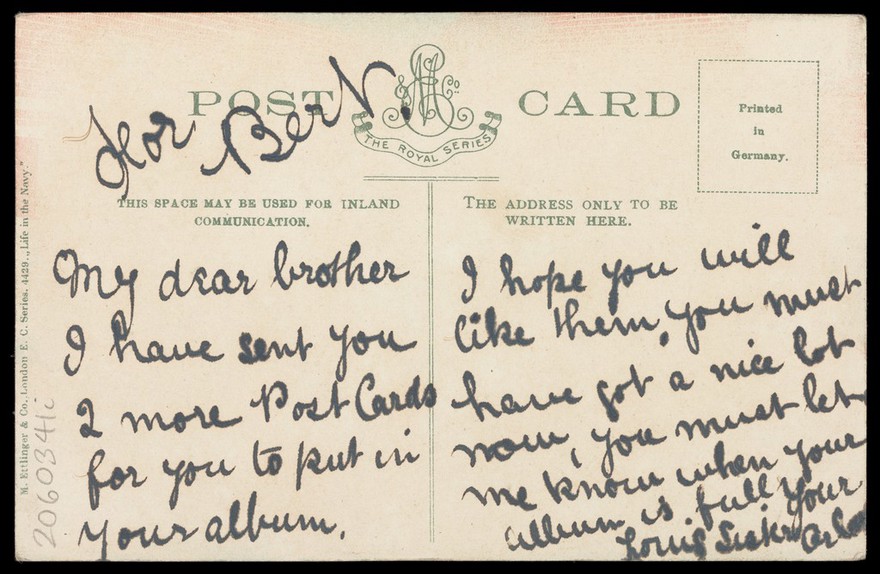 POST CARD
& Co.
THE ROYAL SERIES
For Bert
Printed
in
Germany.
THIS SPACE MAY BE USED FOR INLAND
COMMUNICATION.
THE ADDRESS ONLY TO BE
WRITTEN HERE.
My dear brother
I have sent you
2 more Post Cards
for you to put in
your album.
I hope you will
like them, you must
have got a nice lot
now, you must let
me know when your
album is full, your
M. Ettlinger & Co., London E. C. Series. 4429. „Life in the Navy."
2060341i